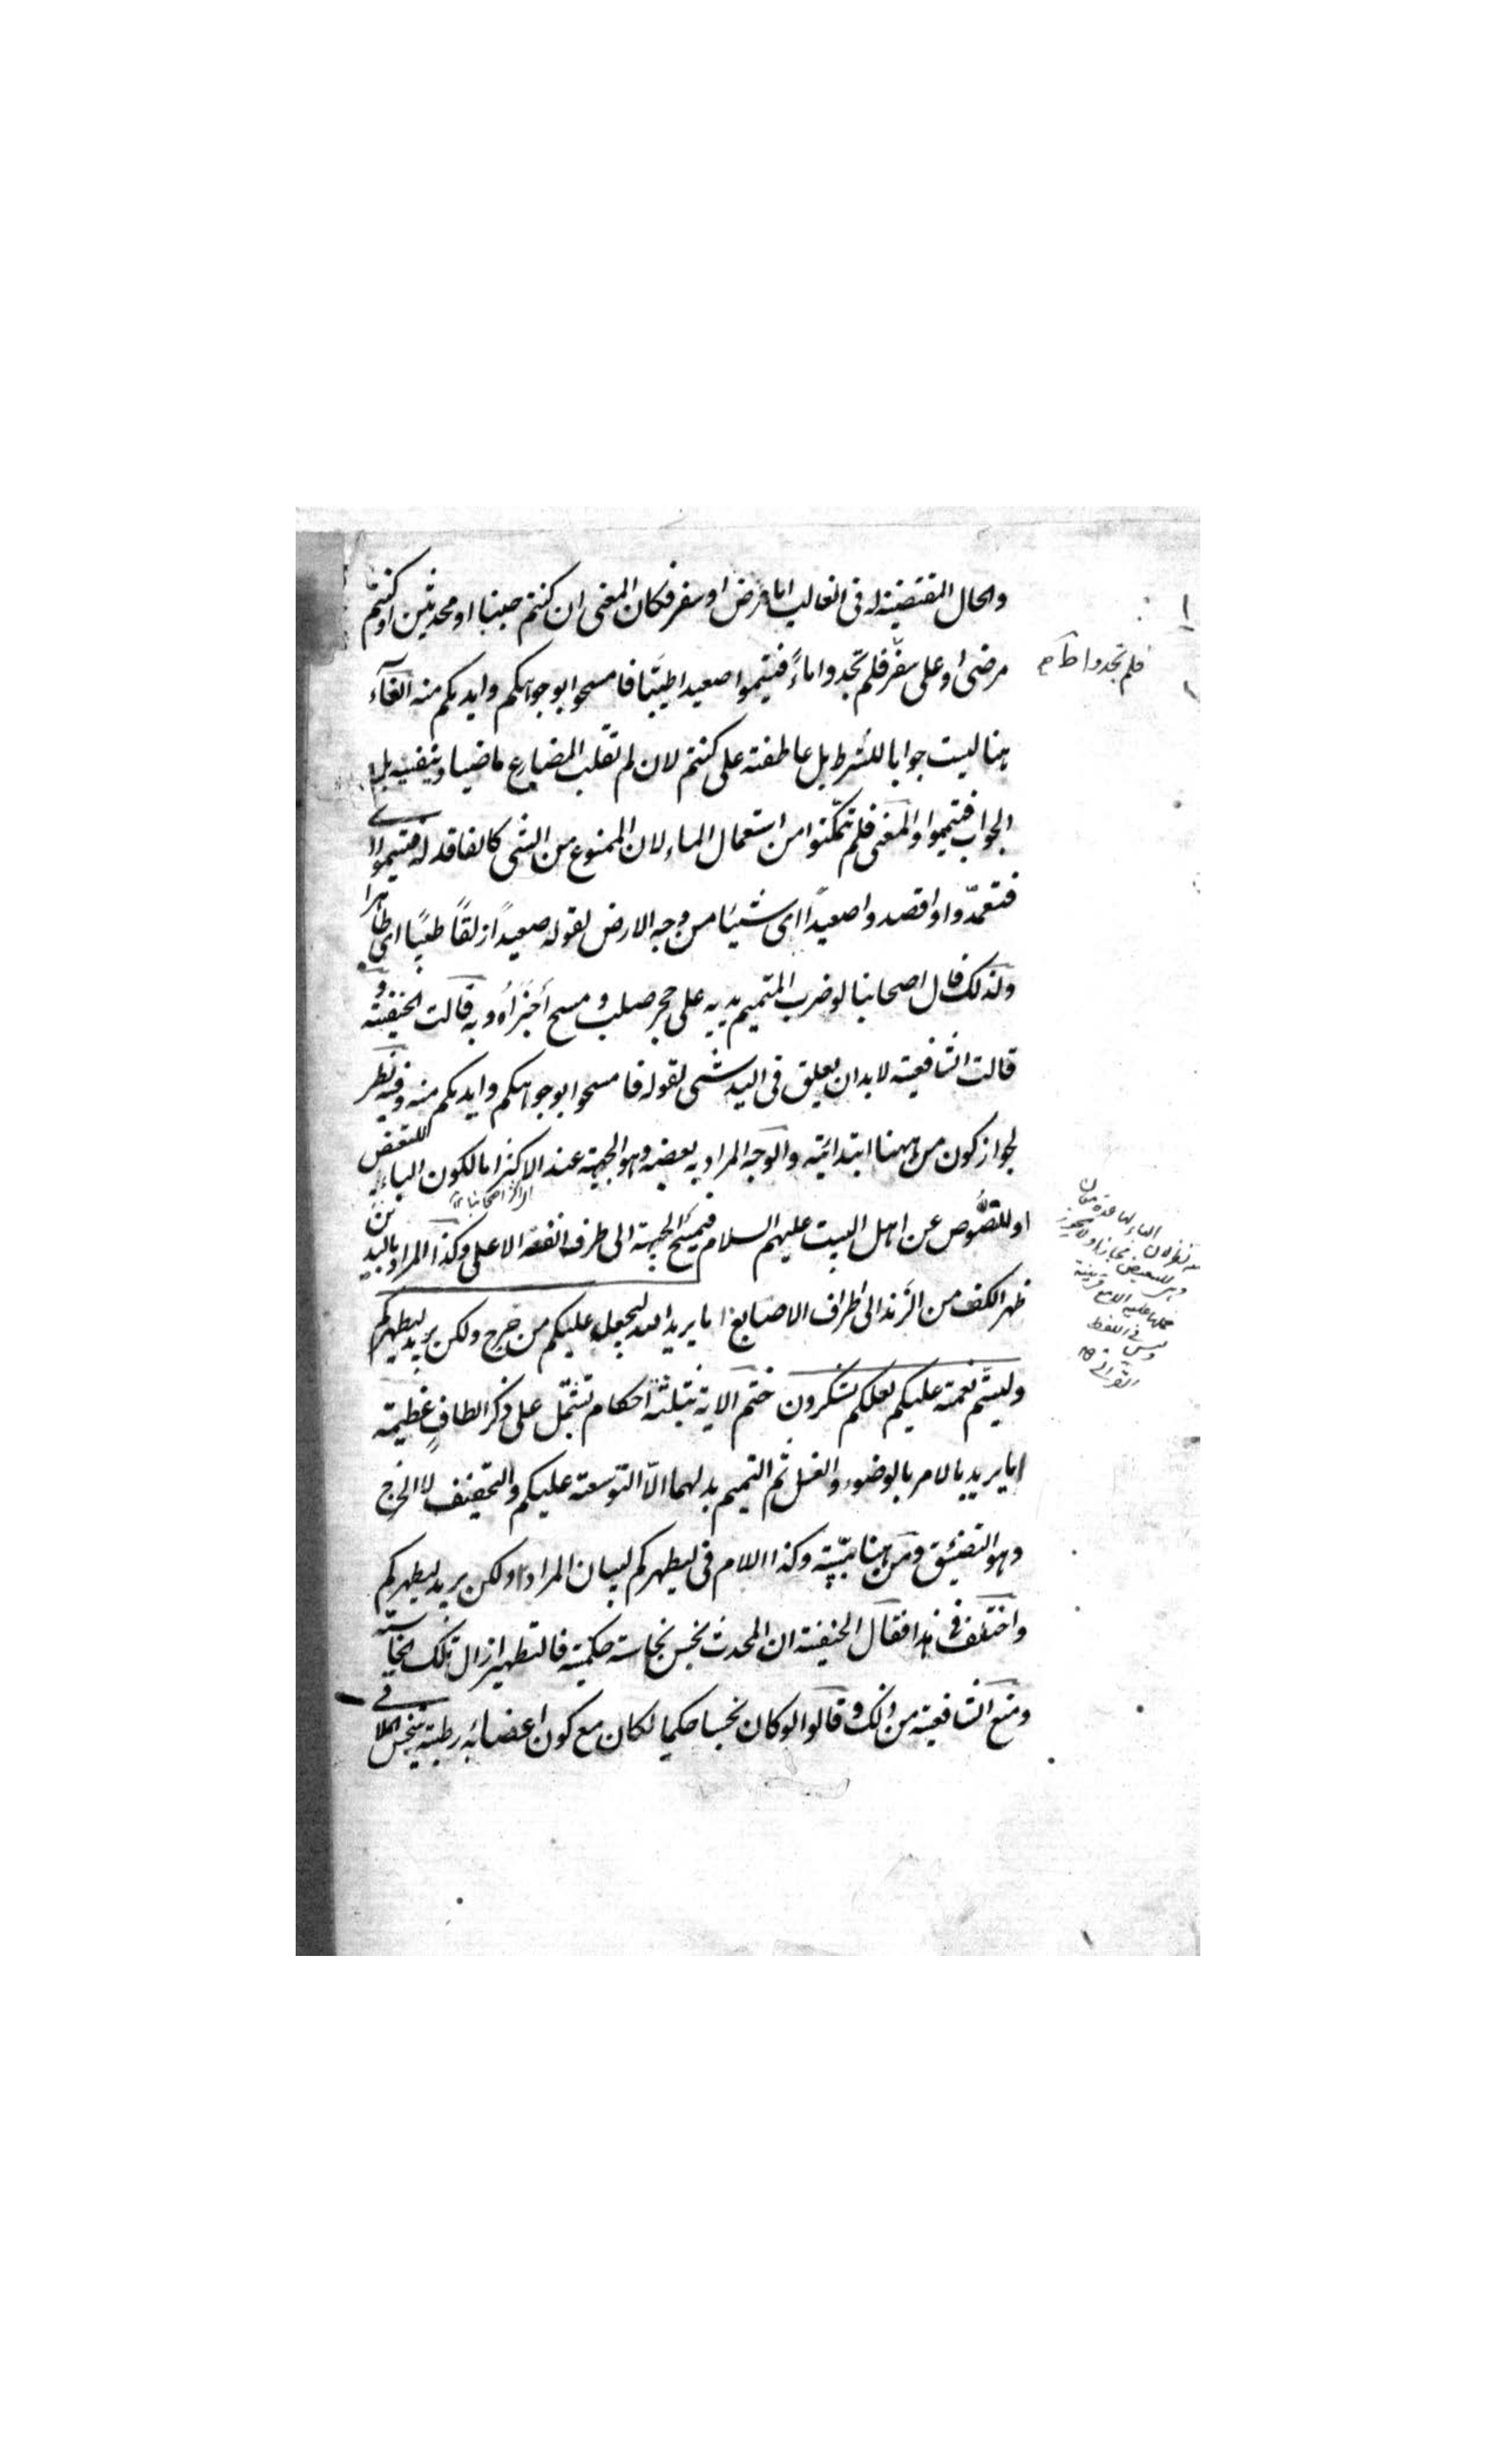 والحال المقتضية له فى الغالب اما مرض او سفر فكان المعنى ان كنتم جنبا او محدثين او كنتم
مرضى او على سفر فلم تجدوا ماءً فتيمموا صعيدا طيّبا فامسحوا بوجوهكم وايديكم منه الفآء
هنا ليست جوابا للشرط بل عاطفة على كنتم لان لم تقلب المضارع ماضيا وينفيه بل
الجواب فتيمموا والمعنى فلم تتمكّنوا من استعمال الماء لان الممنوع من الشى كالفاقد له فتيمموا اى
فتعمدّوا واقصدوا صعيداً اى شيئا من وجه الارض لقوله صعيداً زلقاً طيّبًا اى طاهرا
ولذلك قال اصحابنا لو ضرب المتيمم يديه على حجر صلب ومسح أجزأه وبه قالت الحنفية و
قالت الشافعية لا بد ان يعلق فى اليد شى لقوله فامسحوا بوجوهكم وايديكم منه وفيه نظر
لجواز كون من ههنا ابتدائية والوجه المراد به بعضه وهو الجبهة عند الاكثر اما لكون الباء للتبعيض
او للنصوص عن اهل البيت عليهم السلام فيمسح الجبهة الى طرف انفه الاعلى وكذا المراد باليدين
ظهر الكف من الزند الى اطراف الاصابع ما يريد الله ليجعل عليكم من حرج ولكن يريد ليطهركم
وليتم نعمته عليكم لعلكم تشكرون ختم الاية بثلثة احكام تشتمل على ذكر الطافٍ عظيمة
ا ما يريد بالامر بالوضوء والغسل ثم التيمم بدلهما الّا التوسعة عليكم والتخفيف لا الحرج
وهو التضييق ومن هنا مبيّنة وكذا اللام فى ليطهركم لبيان المراد ولكن يريد ليطهركم
واختلف فى هذا فقال الحنفية ان المحدث نجس نجاسة حكمية فالتطهير ازال تلك النجاسة
ومنع الشافعية من ذلك وقالوا لو كان نجسا حكميا لكان مع كون اعضائه رطبة ينجس الملاقى
فلم تجدوا ماء
اى اكثر اصحابنا
للتبعيض مجازا
فحملها عليه
وليس فى اللفظ